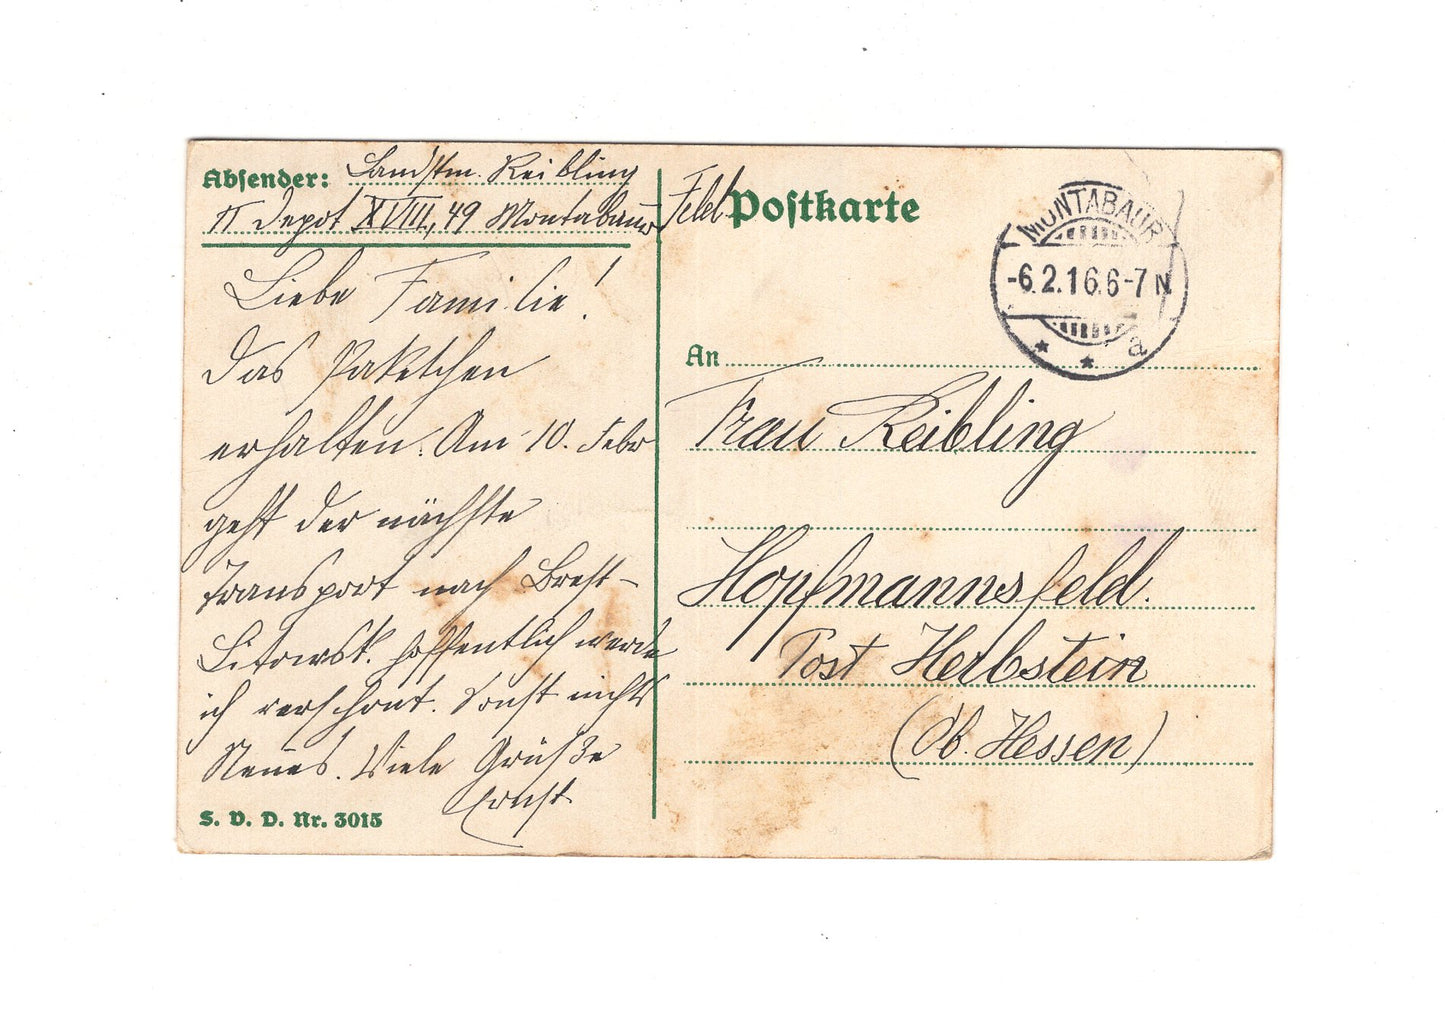 Absender: Landstm. Reibling
II Depot XVIII, 49 Montabaur
Liebe Familie!
Das Paketchen
erhalten. Am 10. Febr
geht der nächste
Transport nach Brest-
Litowsk. Hoffentlich werde
ich verschont. Sonst nichts
Neues. Viele Grüße
Ernst
S. V. D. Nr. 3015
Feld Postkarte
MONTABAUR
-6.2.16.6-7N
* * a
An
Frau Reibling
Hopfmannsfeld.
Post Herbstein
(Ob. Hessen)